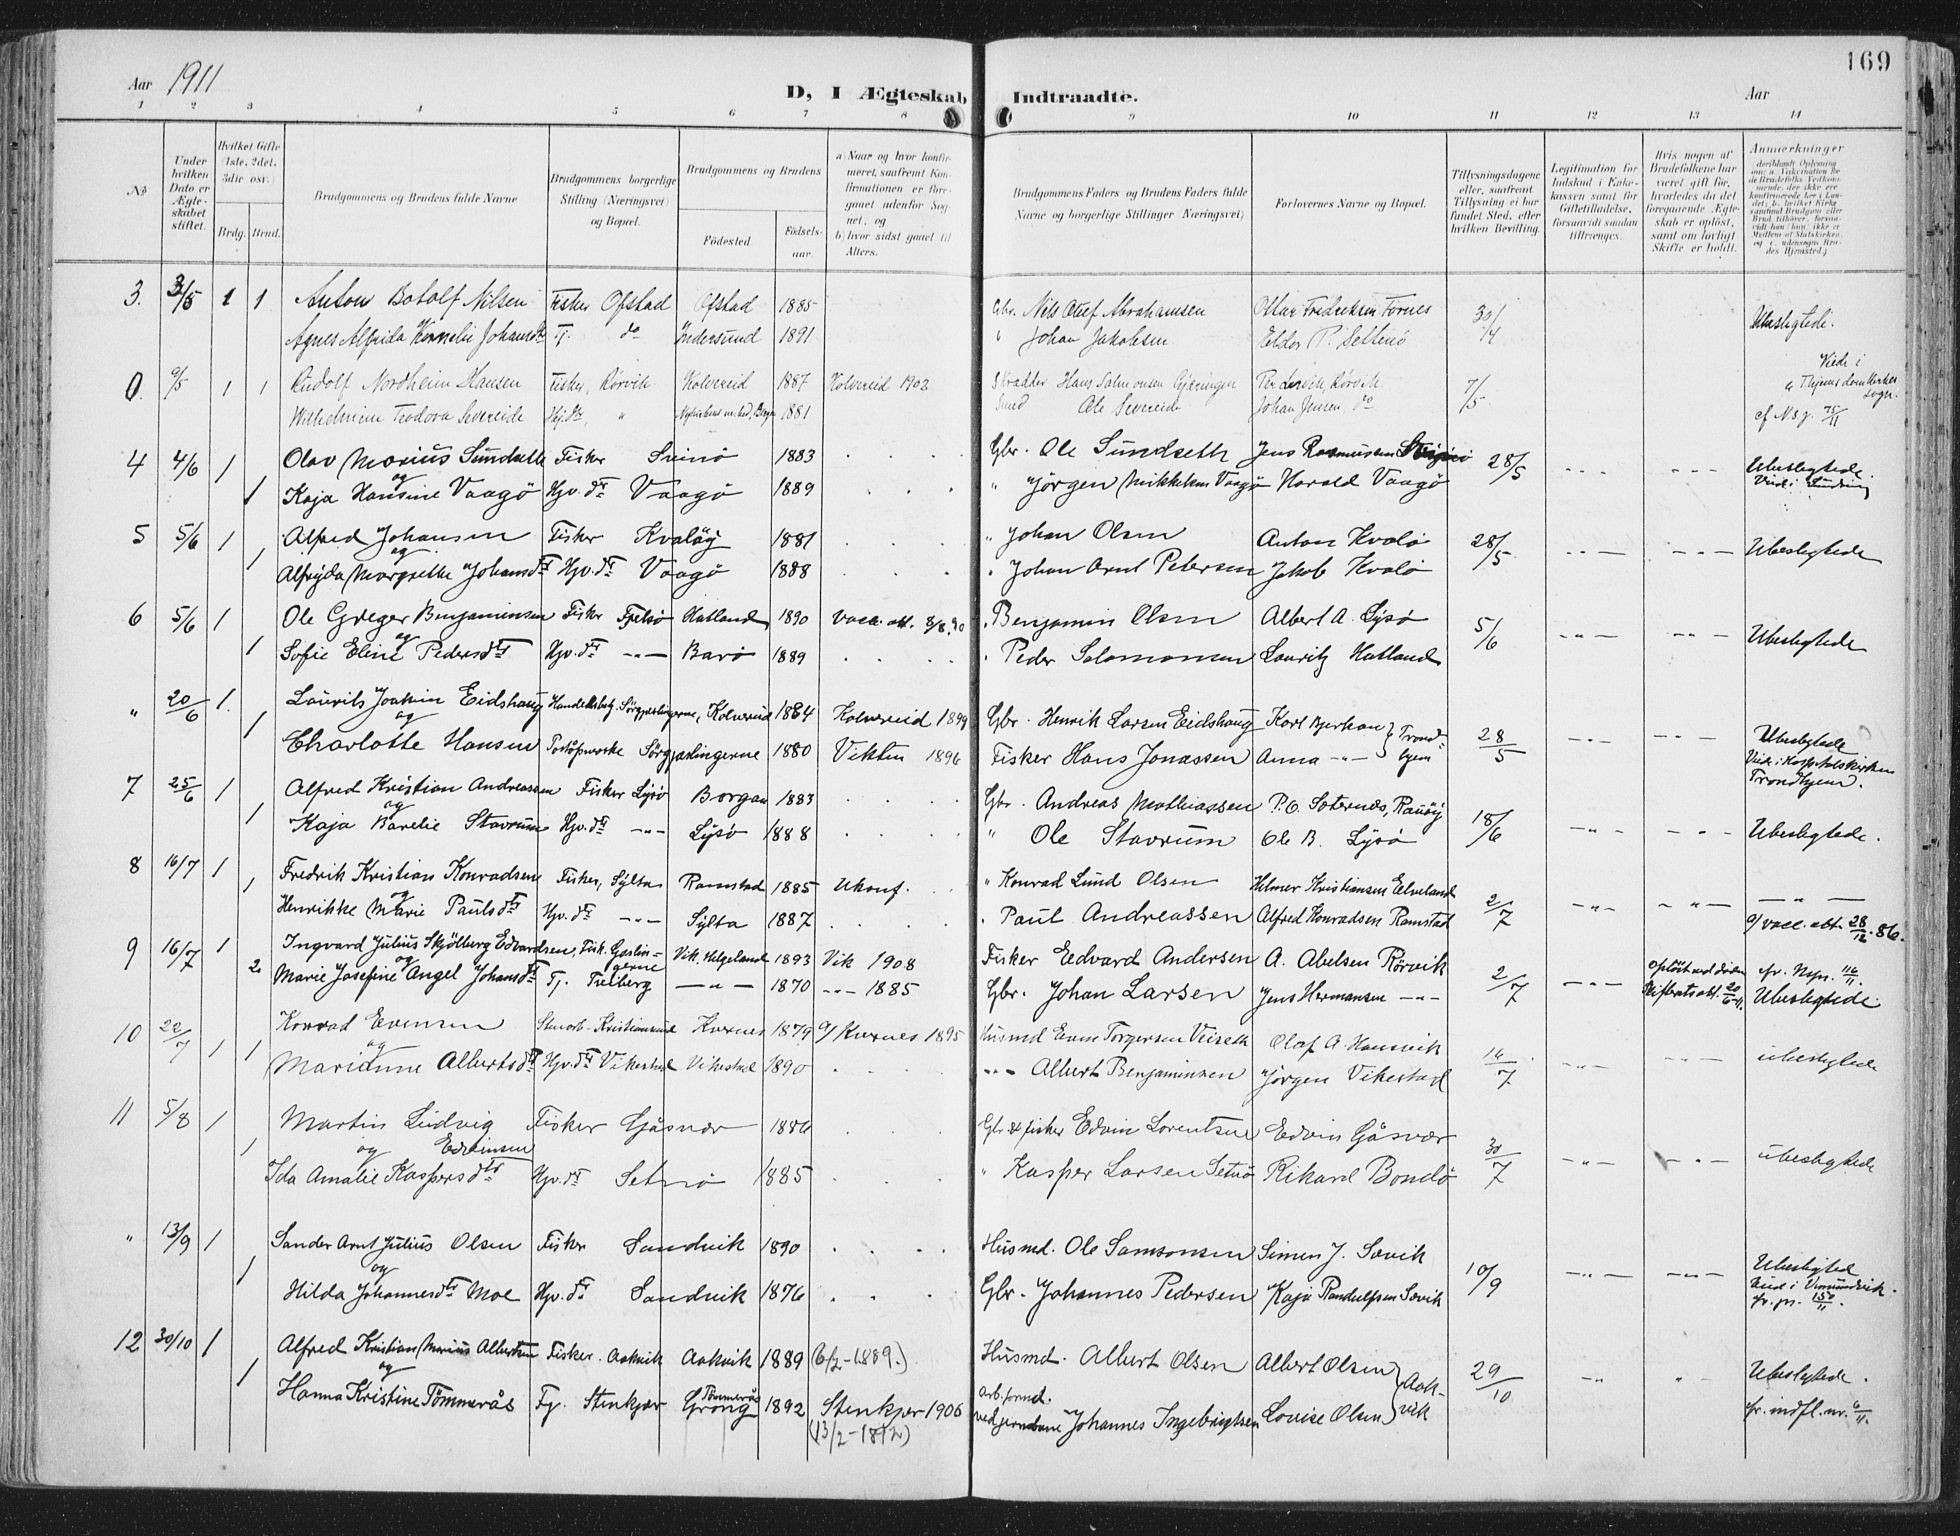 169
Aar 1911
D, I Ægteskab Indtraadte.
Aar
1 2 3 4 5 6 7 8 9 10 11 12 13 14
No
Under hvilken Dato er Ægteskabet stiftet.
Hvilket Gifte (1ste, 2det, 3die osv.)
Brdg. Brud.
Brudgommens og Brudens fulde Navne
Brudgommens borgerlige Stilling (Næringsvei) og Bopæl.
Brudgommens og Brudens
Fødested. Fødselsaar.
a) Naar og hvor konfirmeret, saafremt Konfirmationen er foregaaet udenfor Sognet, og
b) hvor sidst gaaet til Alters.
Brudgommens Faders og Brudens Faders fulde Navne og borgerlige Stillinger Næringsvei)
Forlovernes Navne og Bopæl.
Tillysningsdagene eller, saafremt Tillysning ei har fundet Sted, efter hvilken Bevilling.
Legitimation for Indskud i Enkekassen samt for Giftetilladelse, forsaavidt saadan tiltrænges.
Hvis nogen af Brudefolkene har været gift før, hvorledes da det foregaaende Ægteskab er opløst, samt om lovligt Skifte er holdt.
Anmærkninger
3. 3/5 1 1 Anton Botolf Nilsen Fisker Ofstad Ofstad 1885 Gbr. Nils Oluf Abrahamsen Ottar Fredriksen Fornes 30/4 Ubeslegtede.
Agnes Alfrida Kornelie Johansdtr Tj. do Indersund 1891 " Johan Jakobsen Eldor P. Settenø
0. 9/5 1 1 Rudolf Nordheim Hansen Fisker, Rørvik Kolvereid 1887 Kolvereid 1902 Skradder Hans Salmonsen Per Lervik, Rørvik 7/5 Viede i
Wilhelmine Teodora Severeide Hj.dtr, " 1881 Smed Ole Severeide Johan Jensen do cf N.s.j. 75/11
4 4/6 1 Olav Marius Sundseth Fisker Svinø 1883 Gbr. Ole Sundseth Jens Rasmussen 28/5 Ubeslegtede.
og
1 Kaja Hansine Vaagø Hjv. dtr Vaagø 1889 " Jørgen Mikkelsen Vaagø Harald Vaagø Viede i
5 5/6 1 Alfred Johansen Fisker Kvaløy 1881 " Johan Olsen Anton Kvalø 28/5 Ubeslegtede
og
1 Alfrida Margrethe Johansdtr Hjv. dtr Vaagø 1888 " Johan Arnt Petersen Jakob Kvalø
6 5/6 1 Ole Greger Benjaminsen Fisker Fjelsø Hatland 1890 vacc. att. 8/8.90 " Benjamin Olsen Albert A. Lysø 5/6 Ubeslegtede
og
1 Sofie Eline Pedersdtr Hjv. dtr -"- Barø 1889 " Peder Salomonsen Lauritz Hatland
" 20/6 1. Laurits Joakim Eidshaug Handelsbetj. Sørgjæslingerne, Kolvereid 1884 Kolvereid 1899 Gbr. Henrik Larsen Eidshaug Karl Bjerkan } Trondhjem 28/5 Ubeslegtede
og
1 Charlotte Hansen Postopmerske Sørgjæslingerne 1880 Vikten 1896 Fisker Hans Jonassen Anna -"- Viede i Hospitalskirken Trondhjem.
7 25/6 1 Alfred Kristian Andreassen Fisker Lysø Borgan 1883 Gbr. Andreas Mathiassen P.O. Sæternes, Rauøy 18/6 Ubeslegtede.
og
1 Kaja Barelie Stavrum Hjv. dtr -"- Lysø 1888 " Ole Stavrum Ole B. Lysø
8 16/7 1 Fredrik Kristian Konradsen Fisker, Sylta Ramstad 1885 Ukonf. " Konrad Lund Olsen Helmer Kristiansen Elveland 2/7 -"-
og
1 Henrikke Marie Paulsdtr Hjv. dtr -"- Sylta 1887 " Paul Andreassen Alfred Konradsen Ramstad a/ vacc. att. 28/12.86.
9 16/7 1 Ingvard Julius Skjølberg Edvardsen, Fisk. Gæslingerne Vik, Helgeland 1893 Vik 1908 Fisker Edvard Andersen A. Abelsen Rørvik 2/7 Opløst ved døden cfr. Nspr. 116/11.
og
2 Marie Josefine Angel Johansdtr Tj. Freiberg -"- 1870 -"- 1885 Gbr. Johan Larsen Jens Hermansen -"- Skifteratt. att. 20/6-11. Ubeslegtede.
10 22/7 1 1 Konrad Evensen Stenarb. Kristiansund Kvernes 1879 a/ Kvernes 1895 Husmd Even Torgersen Veiseth Olaf A. Hansvik 16/7 ubeslegtede
og
Marianne Albertsdtr Hjv. dtr Vikestad Vikestad 1890 -"- Albert Benjaminsen Jørgen Vikestad
11 5/8 1 Martin Ludvig Edvinsen Fisker Gåsvær 1886 Gbr & fisker Edvin Lorentsen Edvin Gåsvær 30/7 ubeslegtede
og
1 Ida Amalie Kaspersdtr Hjv. dtr Setnø 1885 " Kasper Larsen Setnø Rikard Bondø
" 13/9 1 Sander Arnt Julius Olsen Fisker Sandvik 1890 Husmd. Ole Samsonsen Simen J. Sævik 10/9 Ubeslegted
og
1 Hilda Johannesdtr Moe Hjv. dtr Sandvik 1876 Gbr. Johannes Pedersen Kaja Randulfsen Sævik Viede i Vemundvik. cfr. jn. 150/11.
12 30/10 1 Alfred Kristian Marius Albertsen Fisker. Aakvik Aakvik 1889 (6/2-1889.) Husmd. Albert Olsen Albert Olsen } Aakvik 29/10 Ubeslegtede.
og
1 Hanna Kristine Tømmerås Tj. Stenkjær Tømmerås Grong 1892 Stenkjær 1906 (13/2-1892) Arb.formd. ved jernbane Johannes Ingebrigtsen Lovise Olsen cfr. indfl. nr. 6/11.